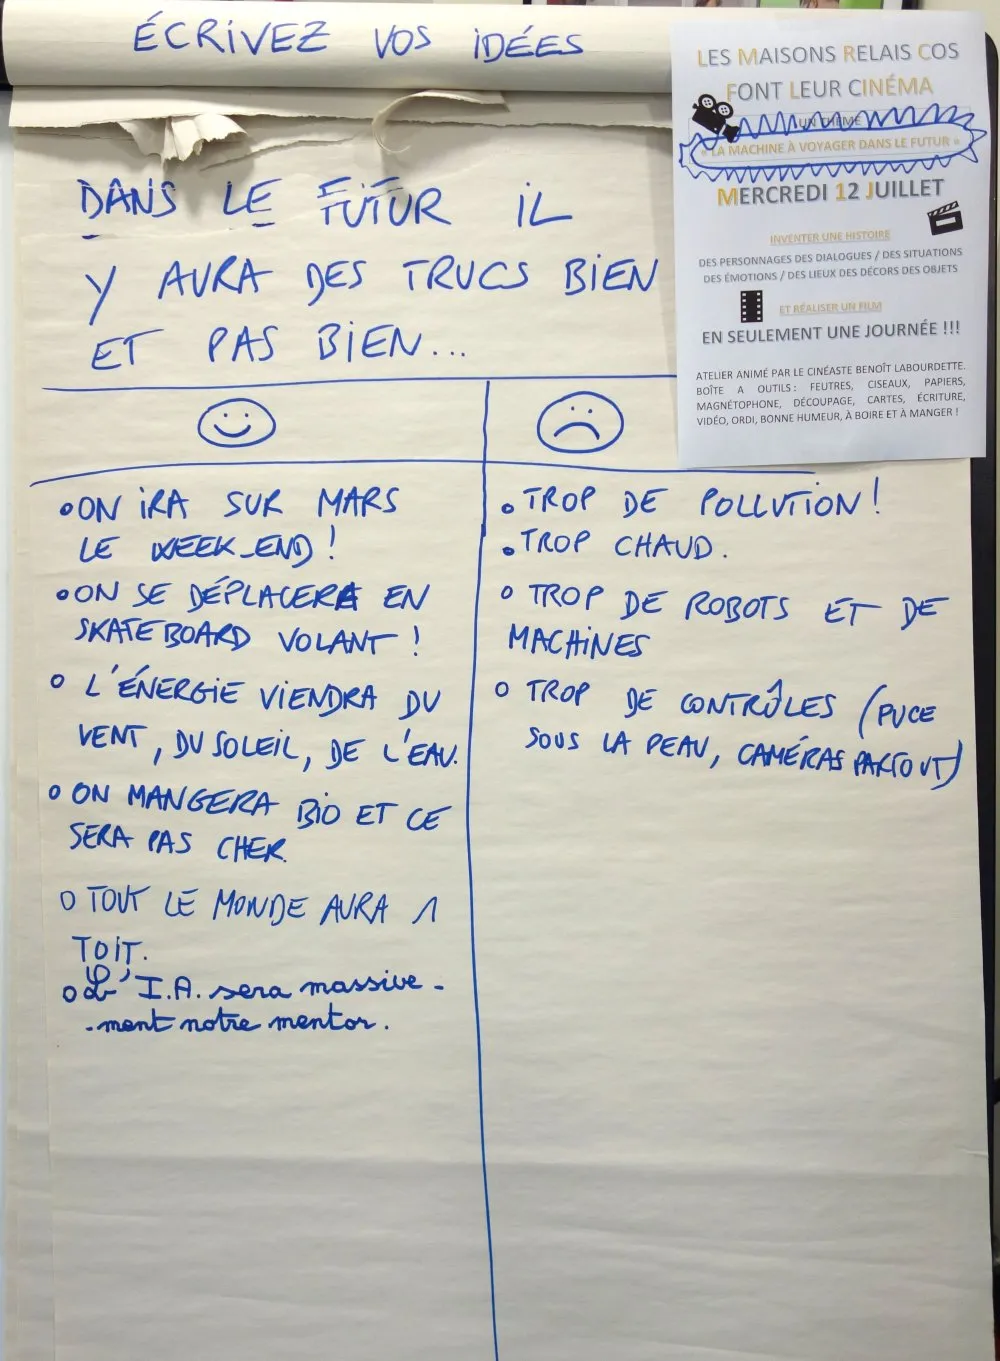 ÉCRIVEZ VOS IDÉES
LES MAISONS RELAIS COS
FONT LEUR CINÉMA
UN THÈME
« LA MACHINE À VOYAGER DANS LE FUTUR »
MERCREDI 12 JUILLET
INVENTER UNE HISTOIRE
DES PERSONNAGES DES DIALOGUES / DES SITUATIONS
DES ÉMOTIONS / DES LIEUX DES DÉCORS DES OBJETS
ET RÉALISER UN FILM
EN SEULEMENT UNE JOURNÉE !!!
ATELIER ANIMÉ PAR LE CINÉASTE BENOÎT LABOURDETTE.
BOÎTE A OUTILS : FEUTRES, CISEAUX, PAPIERS,
MAGNÉTOPHONE, DÉCOUPAGE, CARTES, ÉCRITURE,
VIDÉO, ORDI, BONNE HUMEUR, À BOIRE ET À MANGER !
DANS LE FUTUR IL
Y AURA DES TRUCS BIEN
ET PAS BIEN...
• ON IRA SUR MARS
LE WEEK-END !
• ON SE DÉPLACERA EN
SKATEBOARD VOLANT !
• L'ÉNERGIE VIENDRA DU
VENT, DU SOLEIL, DE L'EAU.
• ON MANGERA BIO ET CE
SERA PAS CHER.
• TOUT LE MONDE AURA 1
TOIT.
• L'I.A. sera massive-
-ment notre mentor.
• TROP DE POLLUTION !
• TROP CHAUD.
• TROP DE ROBOTS ET DE
MACHINES
• TROP DE CONTRÔLES (PUCE
SOUS LA PEAU, CAMÉRAS PARTOUT)